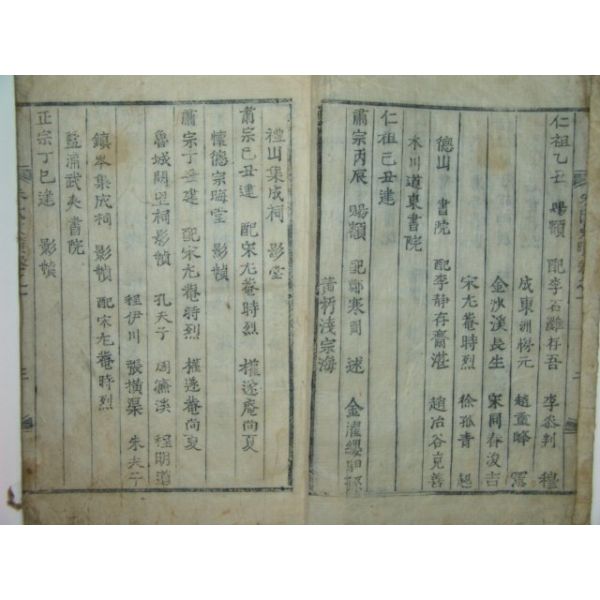 仁祖乙丑 賜額 配李石灘存吾 李參判 穆
成東洲悌元 趙重峰 憲
金沙溪長生 宋同春浚吉
宋尤菴時烈 徐孤青 起
德山 書院 配李靜存齋湛 趙冶谷克善
木川道東書院
仁祖己丑建
肅宗丙辰 賜額 配鄭寒岡 逑 金濯纓馹孫
黃朽淺宗海
禮山集成祠 影堂
肅宗己丑建 配宋尤菴時烈 權遂庵尙夏
懷德宗晦堂 影幀
肅宗丁丑建 配宋尤菴時烈 權遂菴尙夏
魯城闕里祠影幀 孔夫子 周濂溪 程明道
程伊川 張橫渠 朱夫子
鎭岑集成祠 影幀 配宋尤菴時烈
藍浦武夫書院
正宗丁巳建 影幀